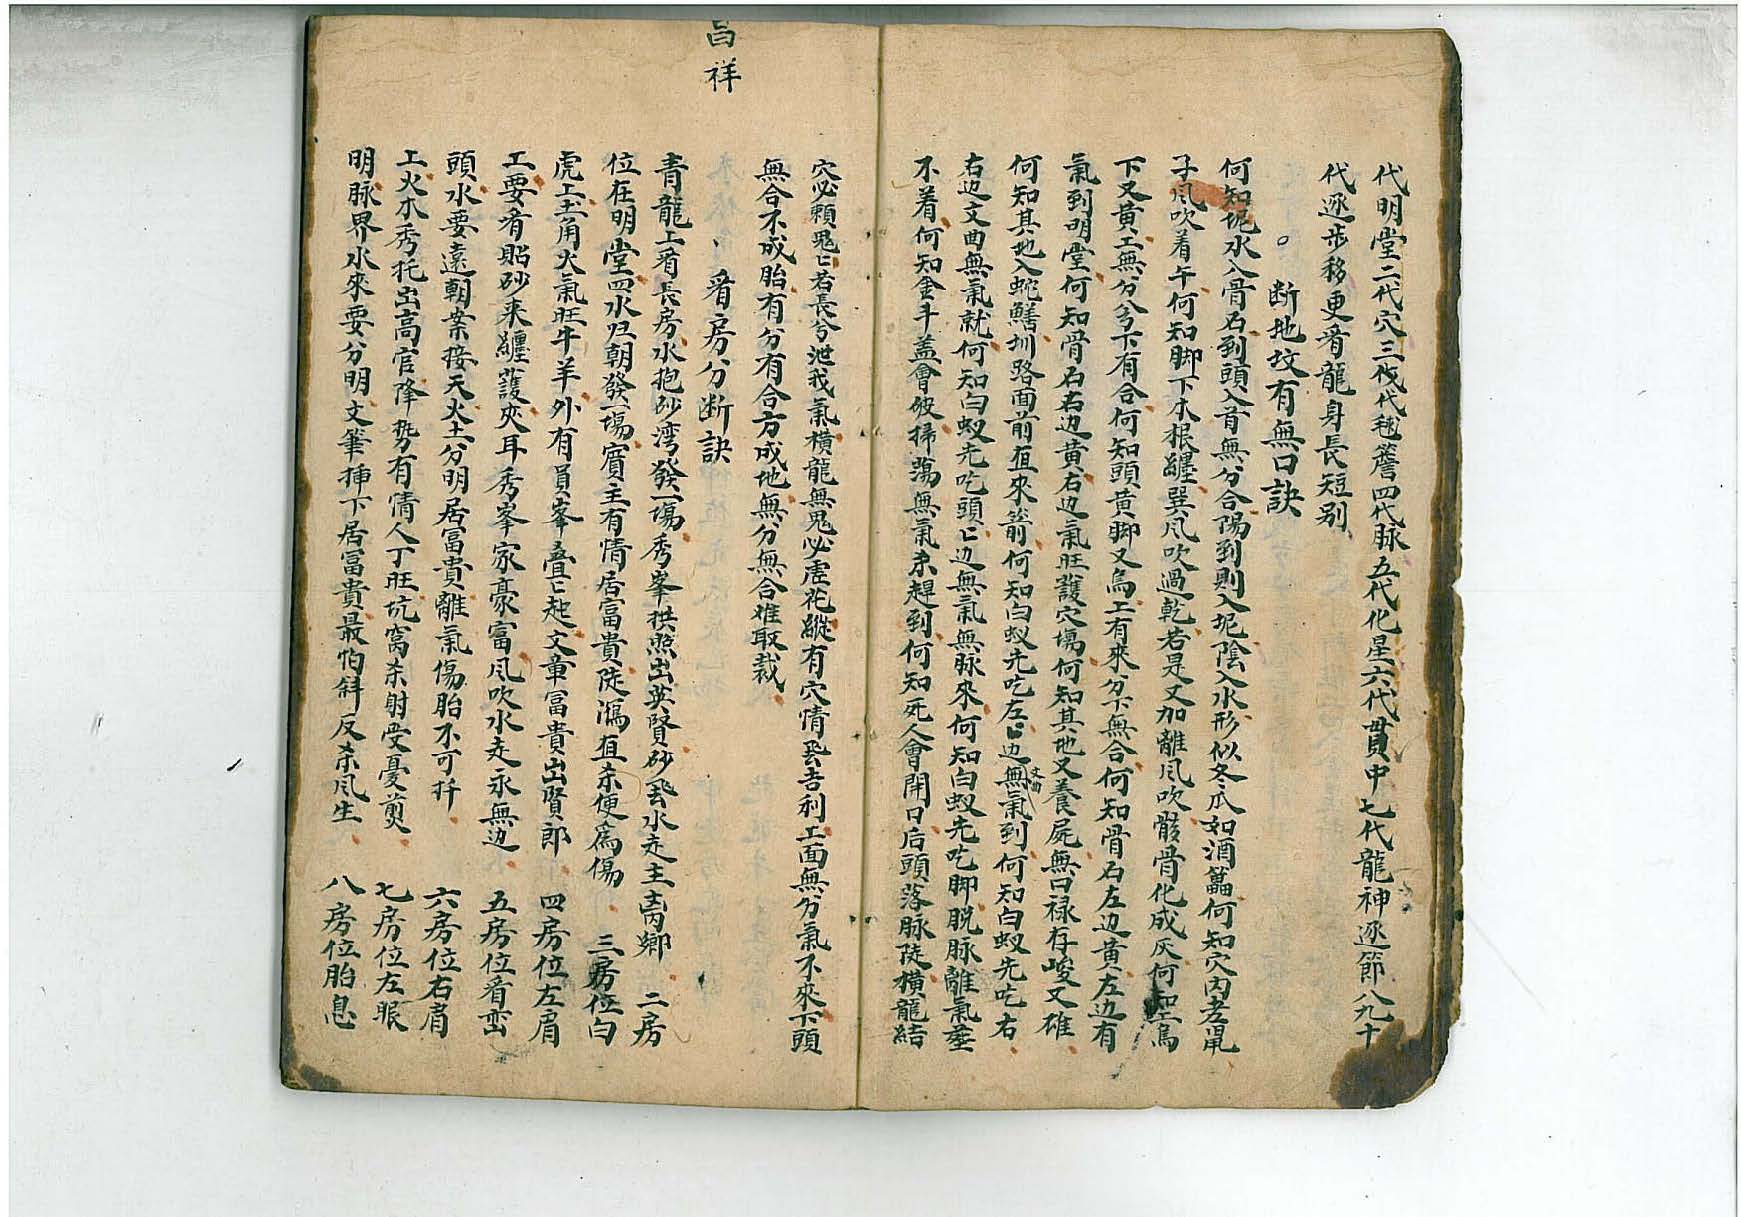 代明堂二代穴三代代毬簷四代脉五代化星六代貫中七代龍神逐節八九十
代逐步移更看龍身長短别
断地坟有無口訣
何知坭水入骨石到頭入首無分合陽到則入坭陰入水形似冬瓜如酒甕何知穴内老鼠
子风吹着午何知脚下木根纏巽风吹過乾若是又加離风吹骸骨化成灰何知烏
下又黄工無分兮下有合何知頭黄脚又烏工有來分下無合何知骨石左边黄左边有
氣到明堂何知骨石右边黄右边氣旺護穴塲何知其地又養屍無曰禄存峻又雄
何知其地入蛇鱔圳路面前直來箭何知白蚁先吃左〻边無氣到何知白蚁先吃右
右边文曲無氣就何知白蚁先吃頭〻边無氣無脉來何知白蚁先吃脚脱脉離氣
不着何知金斗盖會破掃蕩無氣來趕到何知死人會開口后頭落脉陡横龍結
穴必賴鬼〻若長兮泄我氣横龍無鬼必虚花縱有穴情丢吉利工面無分氣不來下頭
無合不成胎有分有合方成地無分無合难取裁
看房分断訣
青龍上看長房水抱砂湾發一塲秀峯拱照出英賢砂飛水走主离鄉 二房
位在明堂四水归朝發一塲賓主有情居富貴陡瀉直杀便為傷 三房位白
虎上土角火氣旺牛羊外有員峯叠〻起文章富貴出賢郎 四房位左肩
工要看貼砂来纏護夾耳秀峯家豪富风吹水走永無边 五房位看峦
頭水要遠朝案接天火土分明居富貴離氣傷胎不可扦 六房位右肩
上火木秀托出高官降势有情人丁旺坑窝杀射受憂煎 七房位左眼
明脉界水來要分明文筆挿下居富貴最怕斜反杀风生 八房位胎息
昌祥